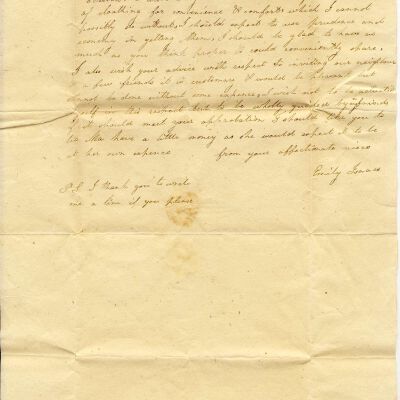 of cloathing for convenience & comforts which I cannot
possibly do without, I should expect to use prudence and
economy in getting them, I should be glad to have as
much as you think proper & could conveniently spare,
I also wish your advice with respect to inviting our neighbours
& a few friends it is customary & would be pleasant but
cannot be done without some expence, I wish not to be
self in this respect but to be wholly guided by friends
if it should meet your approbation I should like you to
let Ma have a little money as she would expect it to be
at her own expence from your affectionate niece
Emily Isaacs
P.S. I thank you to write
me a line if you please